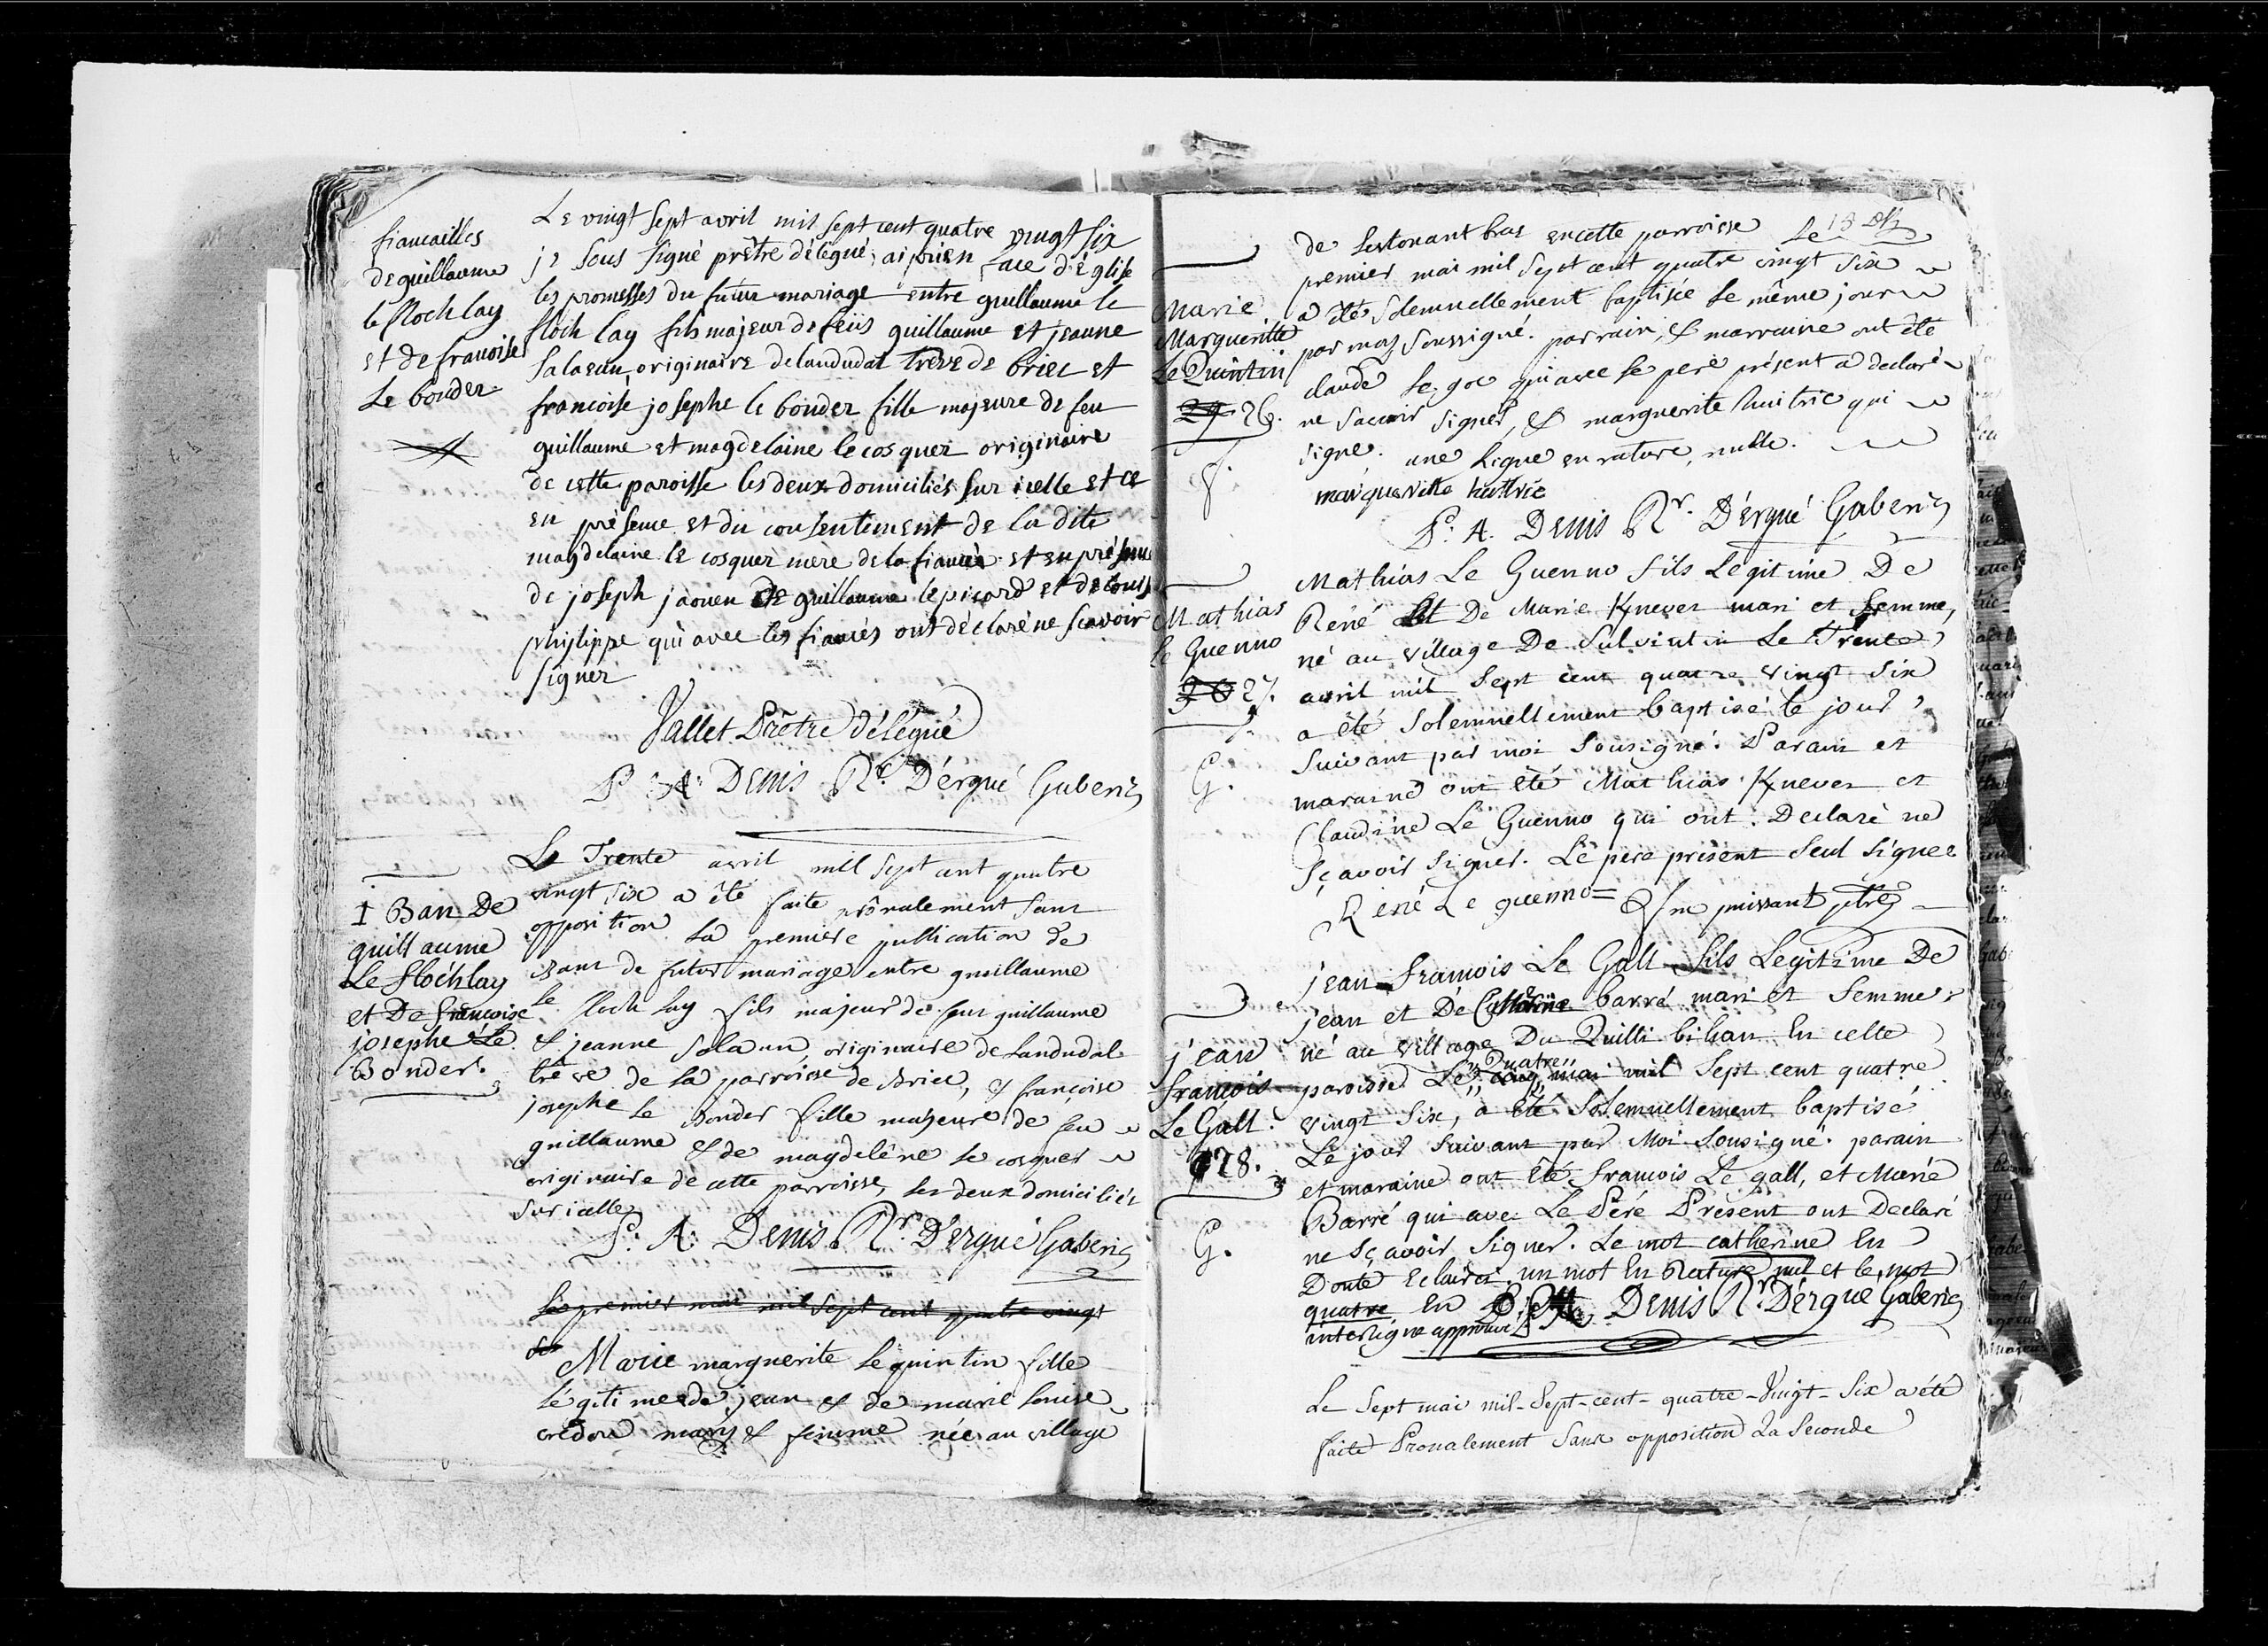 fiancailles
de guillaume
le floch lay
et de francoise
Le bonder
Le vingt sept avril mil sept cent quatre vingt six
je sous signé prêtre délégué, ai pris en face d'église
les promesses du futur mariage entre guillaume le
floch lay fils majeur de feüs guillaume et jeanne
salaeun originaire de landudal trève de briec et
francoise josephe le bonder fille majeure de feu
guillaume et magdelaine le cosquer originaire
de cette paroisse les deux domiciliés sur icelle et ce
en présence et du consentement de la dite
magdelaine le cosquer mère de la fiancée et en présence
de joseph jaouen de guillaume le picard et de louis
philippe qui avec les fiancés ont déclaré ne scavoir
signer
Vallet Prêtre délégué
P. A. Denis Rr. D'ergué Gaberic
1 Ban De
guillaume
Le flochlay
et De francoise
josephe Le
Bonder.
Le Trente avril mil sept cent quatre
vingt six a été faite prônalement sans
opposition la premiere publication de
bans de futur mariage entre guillaume
le floch lay fils majeur de feus guillaume
& jeanne Salaun, originaire de Landudal
trève de la parroisse de Briec, & françoise
josephe le Bonder fille majeure de feu
guillaume & de magdelène le cosquer
originaire de cette parroisse, les deux domiciliés
sur icelle
P. A. Denis Rr. D'ergué Gaberic
Le premier mai mil sept cent quatre vingt
six
Marie marguerite le quintin fille
légitime de jean & de marie louise
credou mary & femme née au village
de Lestonant bras en cette parroisse Le
premier mai mil sept cent quatre vingt six
a été solemnellement baptisée le même jour
par moy soussigné. parrain, & marraine ont été
claude le goc qui avec le père présent a déclaré
ne sçavoir signer, & marguerite huitric qui
signe. une ligne en rature, nulle.
marguerite huitric
P. A. Denis Rr. D'érgué Gaberic
Marie
Marguerite
Le Quintin
29 26.
f.
Mathias
le Guenno
26 27.
G.
Mathias Le Guenno fils Légitime De
René Et De Marie Knever mari et femme,
né au village De Sulvintin Le Trente
avril mil sept cent quatre vingt six
a été solemnellement baptisé le jour
suivant par moi sousigné. Parain et
maraine ont été Mathias Knever et
Claudine Le Guenno qui ont Declaré ne
sçavoir signer. Le père présent seul signer
René Le guenno = puissant ptre
jean
françois
Le Gall.
28.
G.
jean françois Le Gall fils Légitime De
jean et De Catherine barré mari et femme
né au village Du Quilli bihan En cette
paroisse Le "Quatre" cinq mai mil Sept cent quatre
vingt six, a été Solemnellement baptisé
Le jour suivant par Moi sousigné. parain
et maraine ont été françois Le gall, et Marie
Barré qui avec Le Père Présent ont Declaré
ne sçavoir signer. Le mot catherine En
Doute Eclairci, un mot En Rature nul et le mot
quatre En interligne approuvé P. A. Denis Rr. D'érgué Gaberic
Le Sept mai mil-Sept-cent-quatre-Vingt-Six a été
faite Pronalement Sans opposition La Seconde